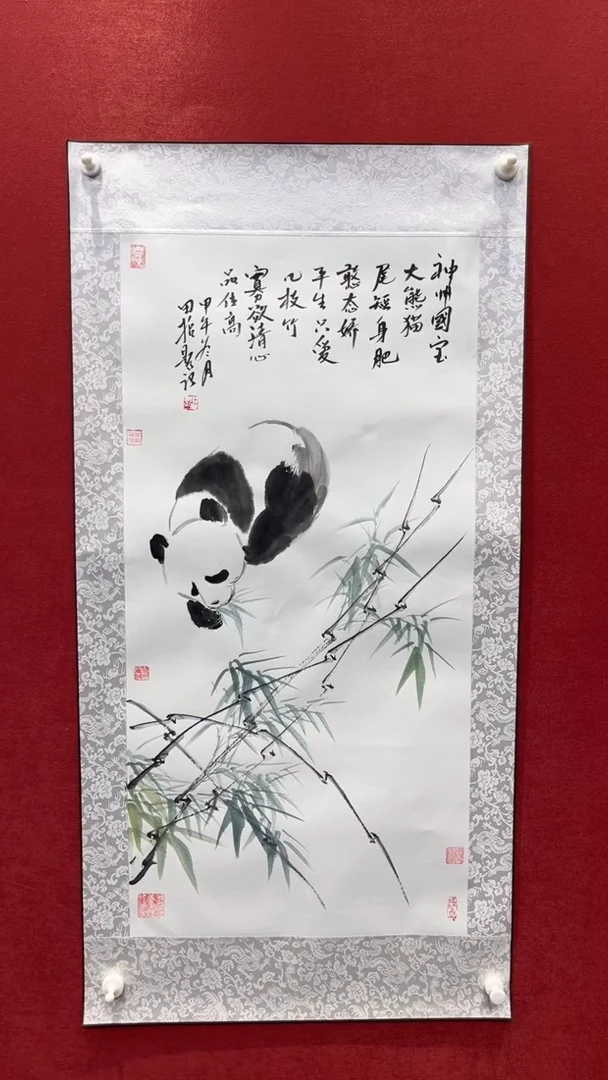 神州國宝
大熊猫
尾短身肥
憨态娇
平生只爱
几枝竹
寡欲清心
品位高
甲午冬月